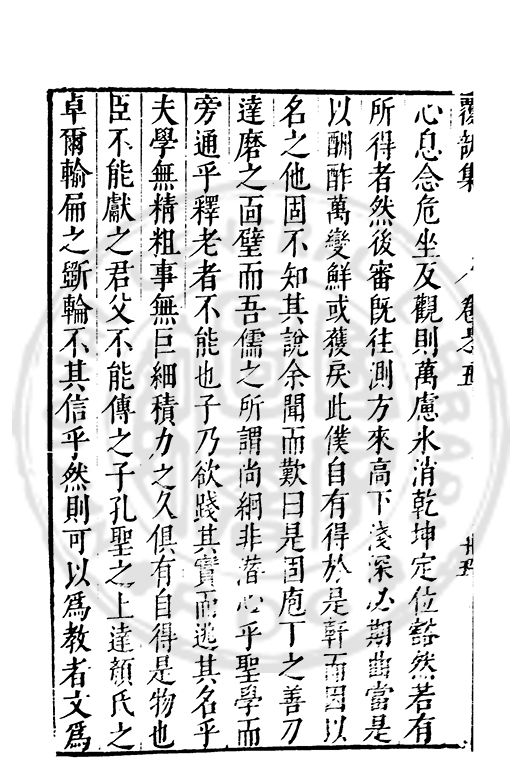 覆瓿集 卷之五
心息念危坐反觀則萬慮氷消乾坤定位豁然若有
所得者然後審既往測方來高下淺深必期曲當是
以酬酢萬變鮮或獲戾此僕自有得於是軒而因以
名之他固不知其說余聞而歎曰是固庖丁之善刀
達磨之面璧而吾儒之所謂尚絅非潛心乎聖學而
旁通乎釋老者不能也子乃欲踐其實而逃其名乎
夫學無精粗事無巨細積力之久俱有自得是物也
臣不能獻之君父不能傳之子孔聖之上達顏氏之
卓爾輪扁之斵輪不其信乎然則可以爲教者文爲